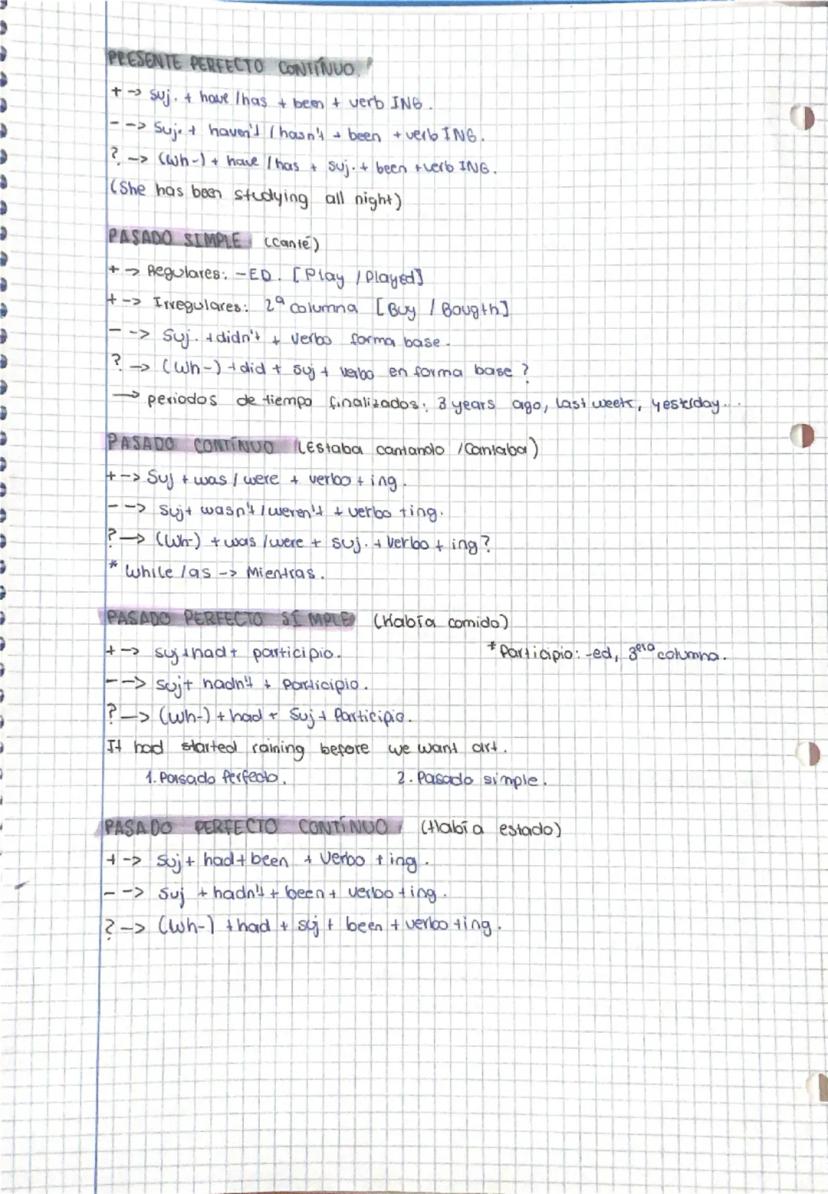 PRESENTE PERFECTO CONTÍNUO.
+ -> suj. + have /has + been + verb ING.
- -> Suj. + haven't / hasn't + been + verb ING.
? -> (Wh-) + have /has + suj. + been + verb ING.
(She has been studying all night)
PASADO SIMPLE (canté)
+ -> Regulares: -ED. [Play / Played]
+ -> Irregulares: 2ª columna [Buy / Bougth]
- -> Suj. + didn't + verbo forma base.
? -> (Wh-) + did + suj + verbo en forma base ?
-> periodos de tiempo finalizados: 3 years ago, last week, yesterday...
PASADO CONTÍNUO (Estaba cantando /Cantaba)
+ -> Suj + was / were + verbo + ing.
- -> Suj + wasn't / weren't + verbo + ing.
? -> (Wh-) + was /were + suj. + Verbo + ing?
* While /as -> Mientras.
PASADO PERFECTO SÍMPLE (Había comido)
+ -> suj + had + participio. *Participio: -ed, 3era columna.
- -> suj + hadn't + Participio.
? -> (Wh-) + had + Suj + Participio.
It had started raining before we want art.
1. Pasado Perfecto. 2. Pasado simple.
PASADO PERFECTO CONTÍNUO (Había estado)
+ -> Suj + had + been + Verbo + ing.
- -> Suj + hadn't + been + verbo + ing.
? -> (Wh-) + had + suj + been + verbo + ing.